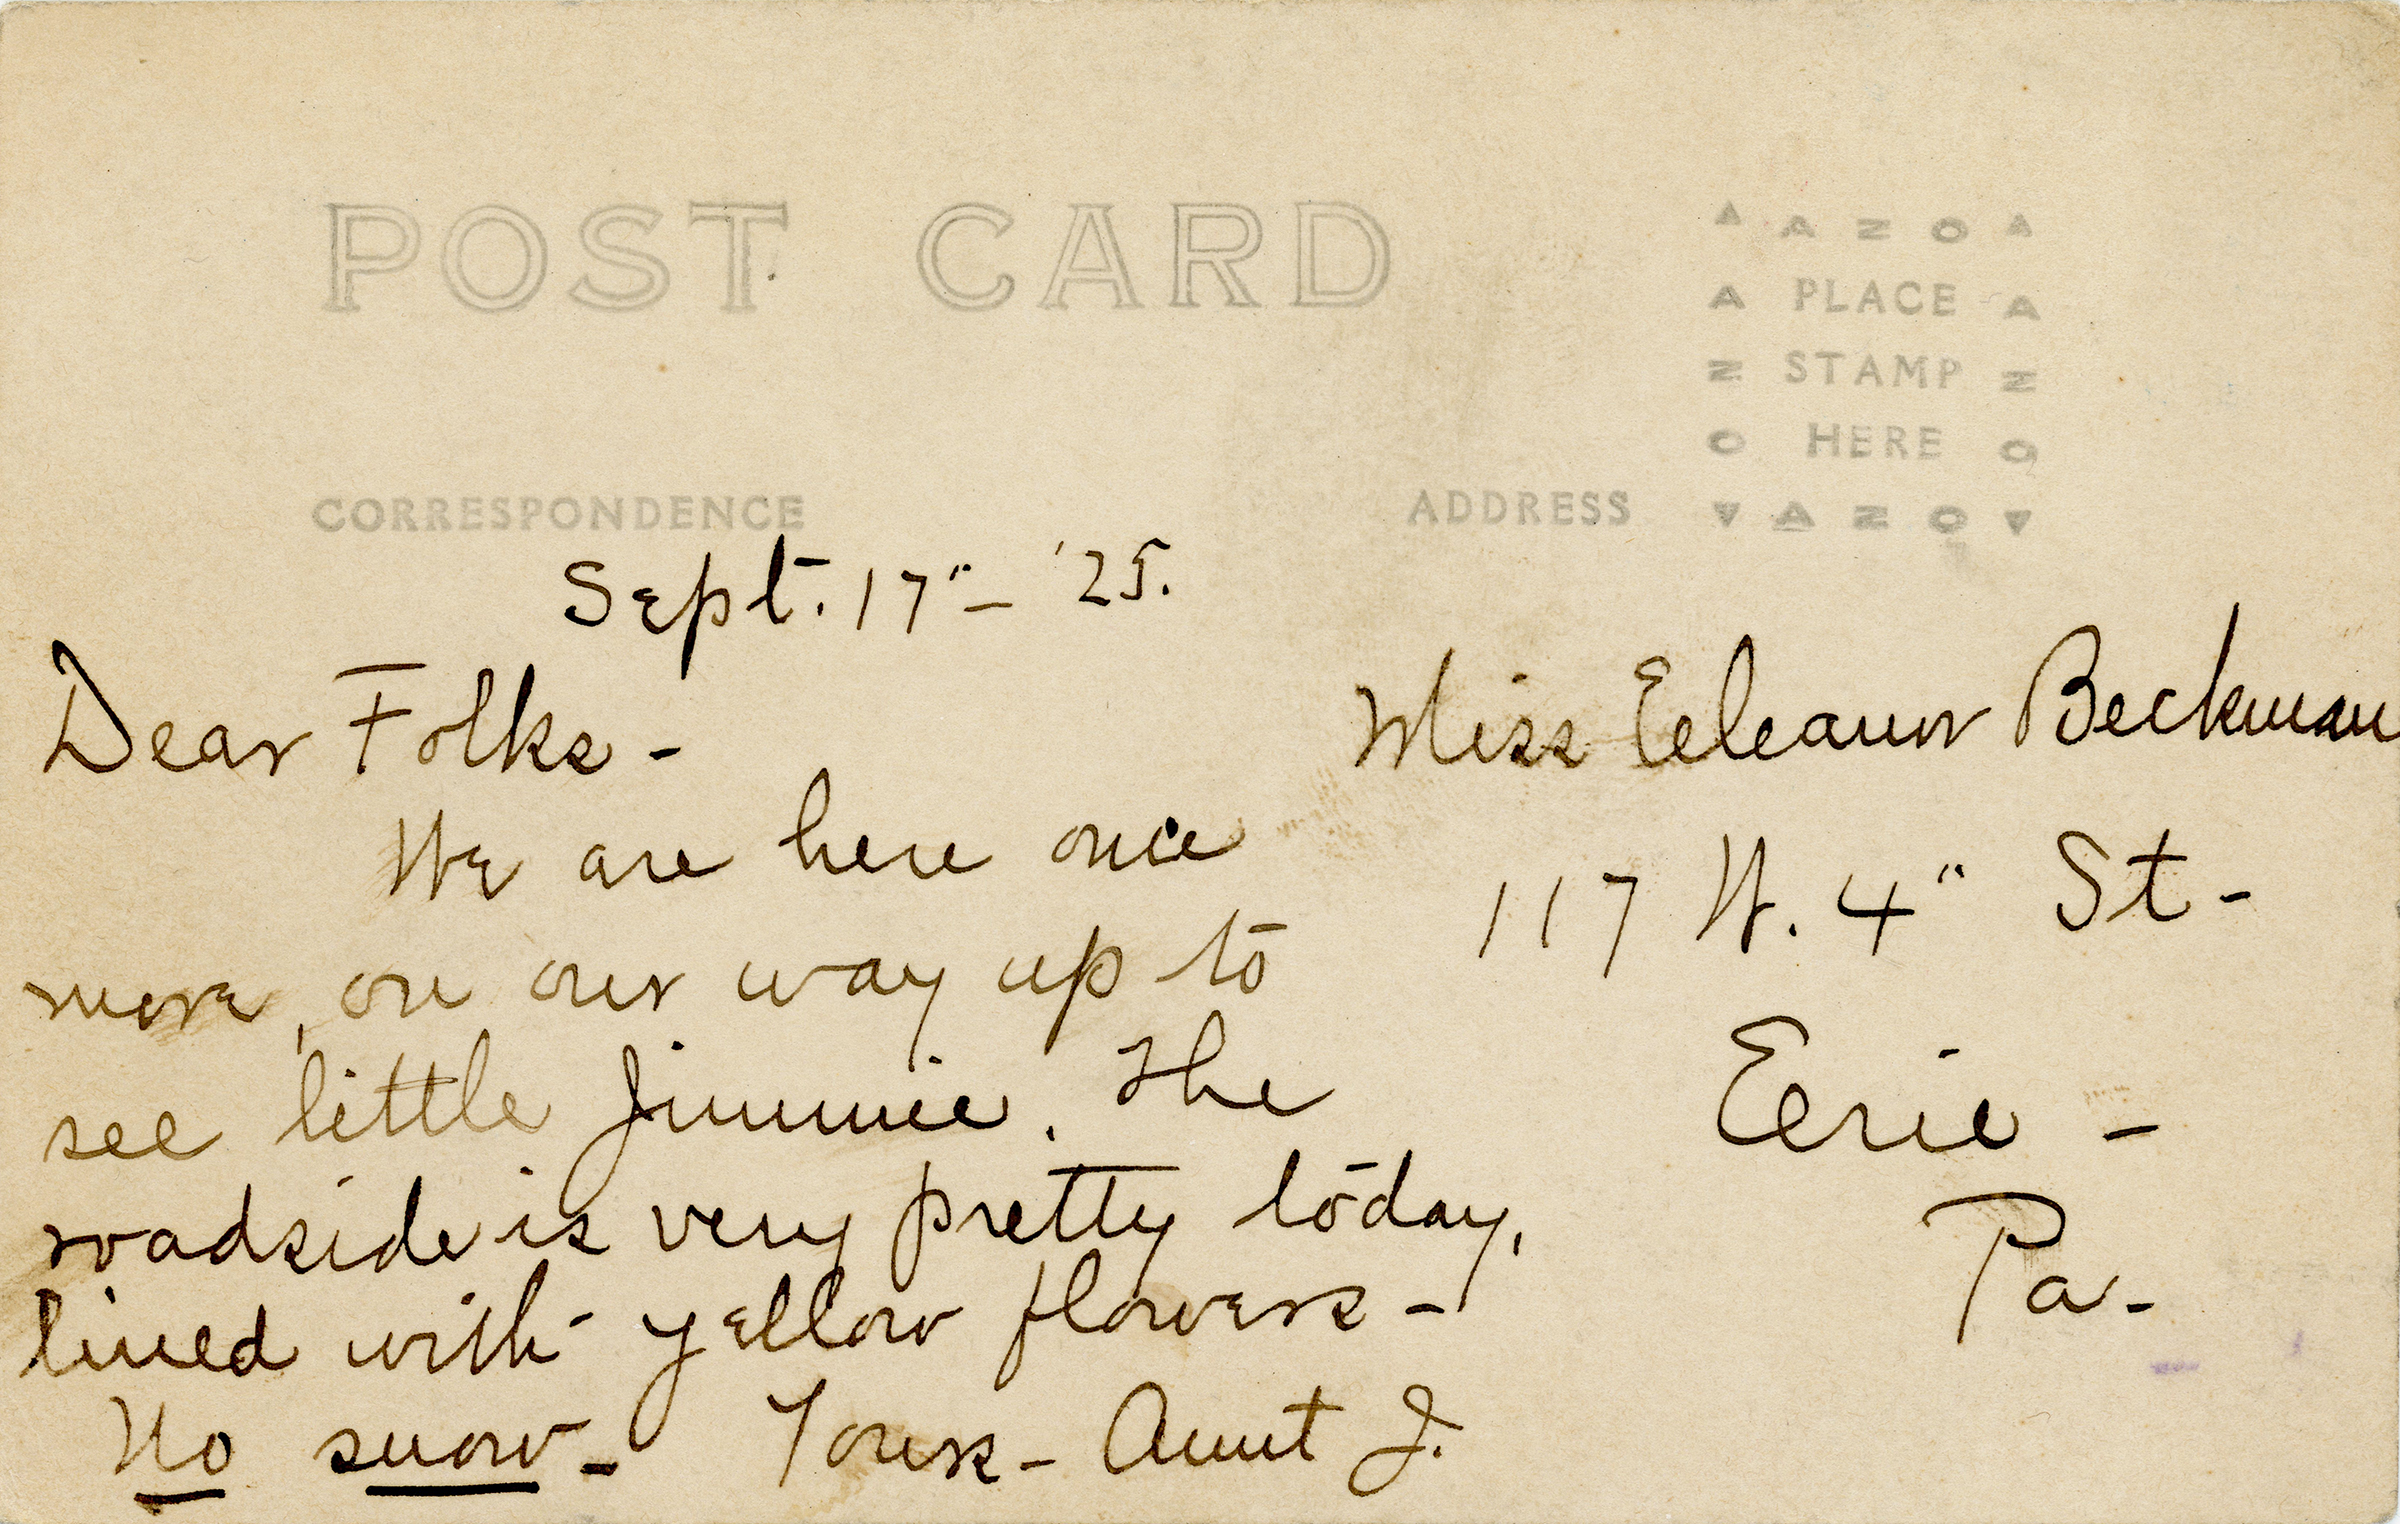 POST CARD
▲ AZO ▲
A PLACE A
Z STAMP Z
O HERE O
▼ AZO ▼
CORRESPONDENCE
ADDRESS
Sept. 17" – '25.
Dear Folks –
We are here once
more, on our way up to
see little Jimmie. The
roadside is very pretty today,
lined with yellow flowers –
No snow – Yours – Aunt J.
Miss Eleanor Beckman
117 W. 4" St –
Erie –
Pa –